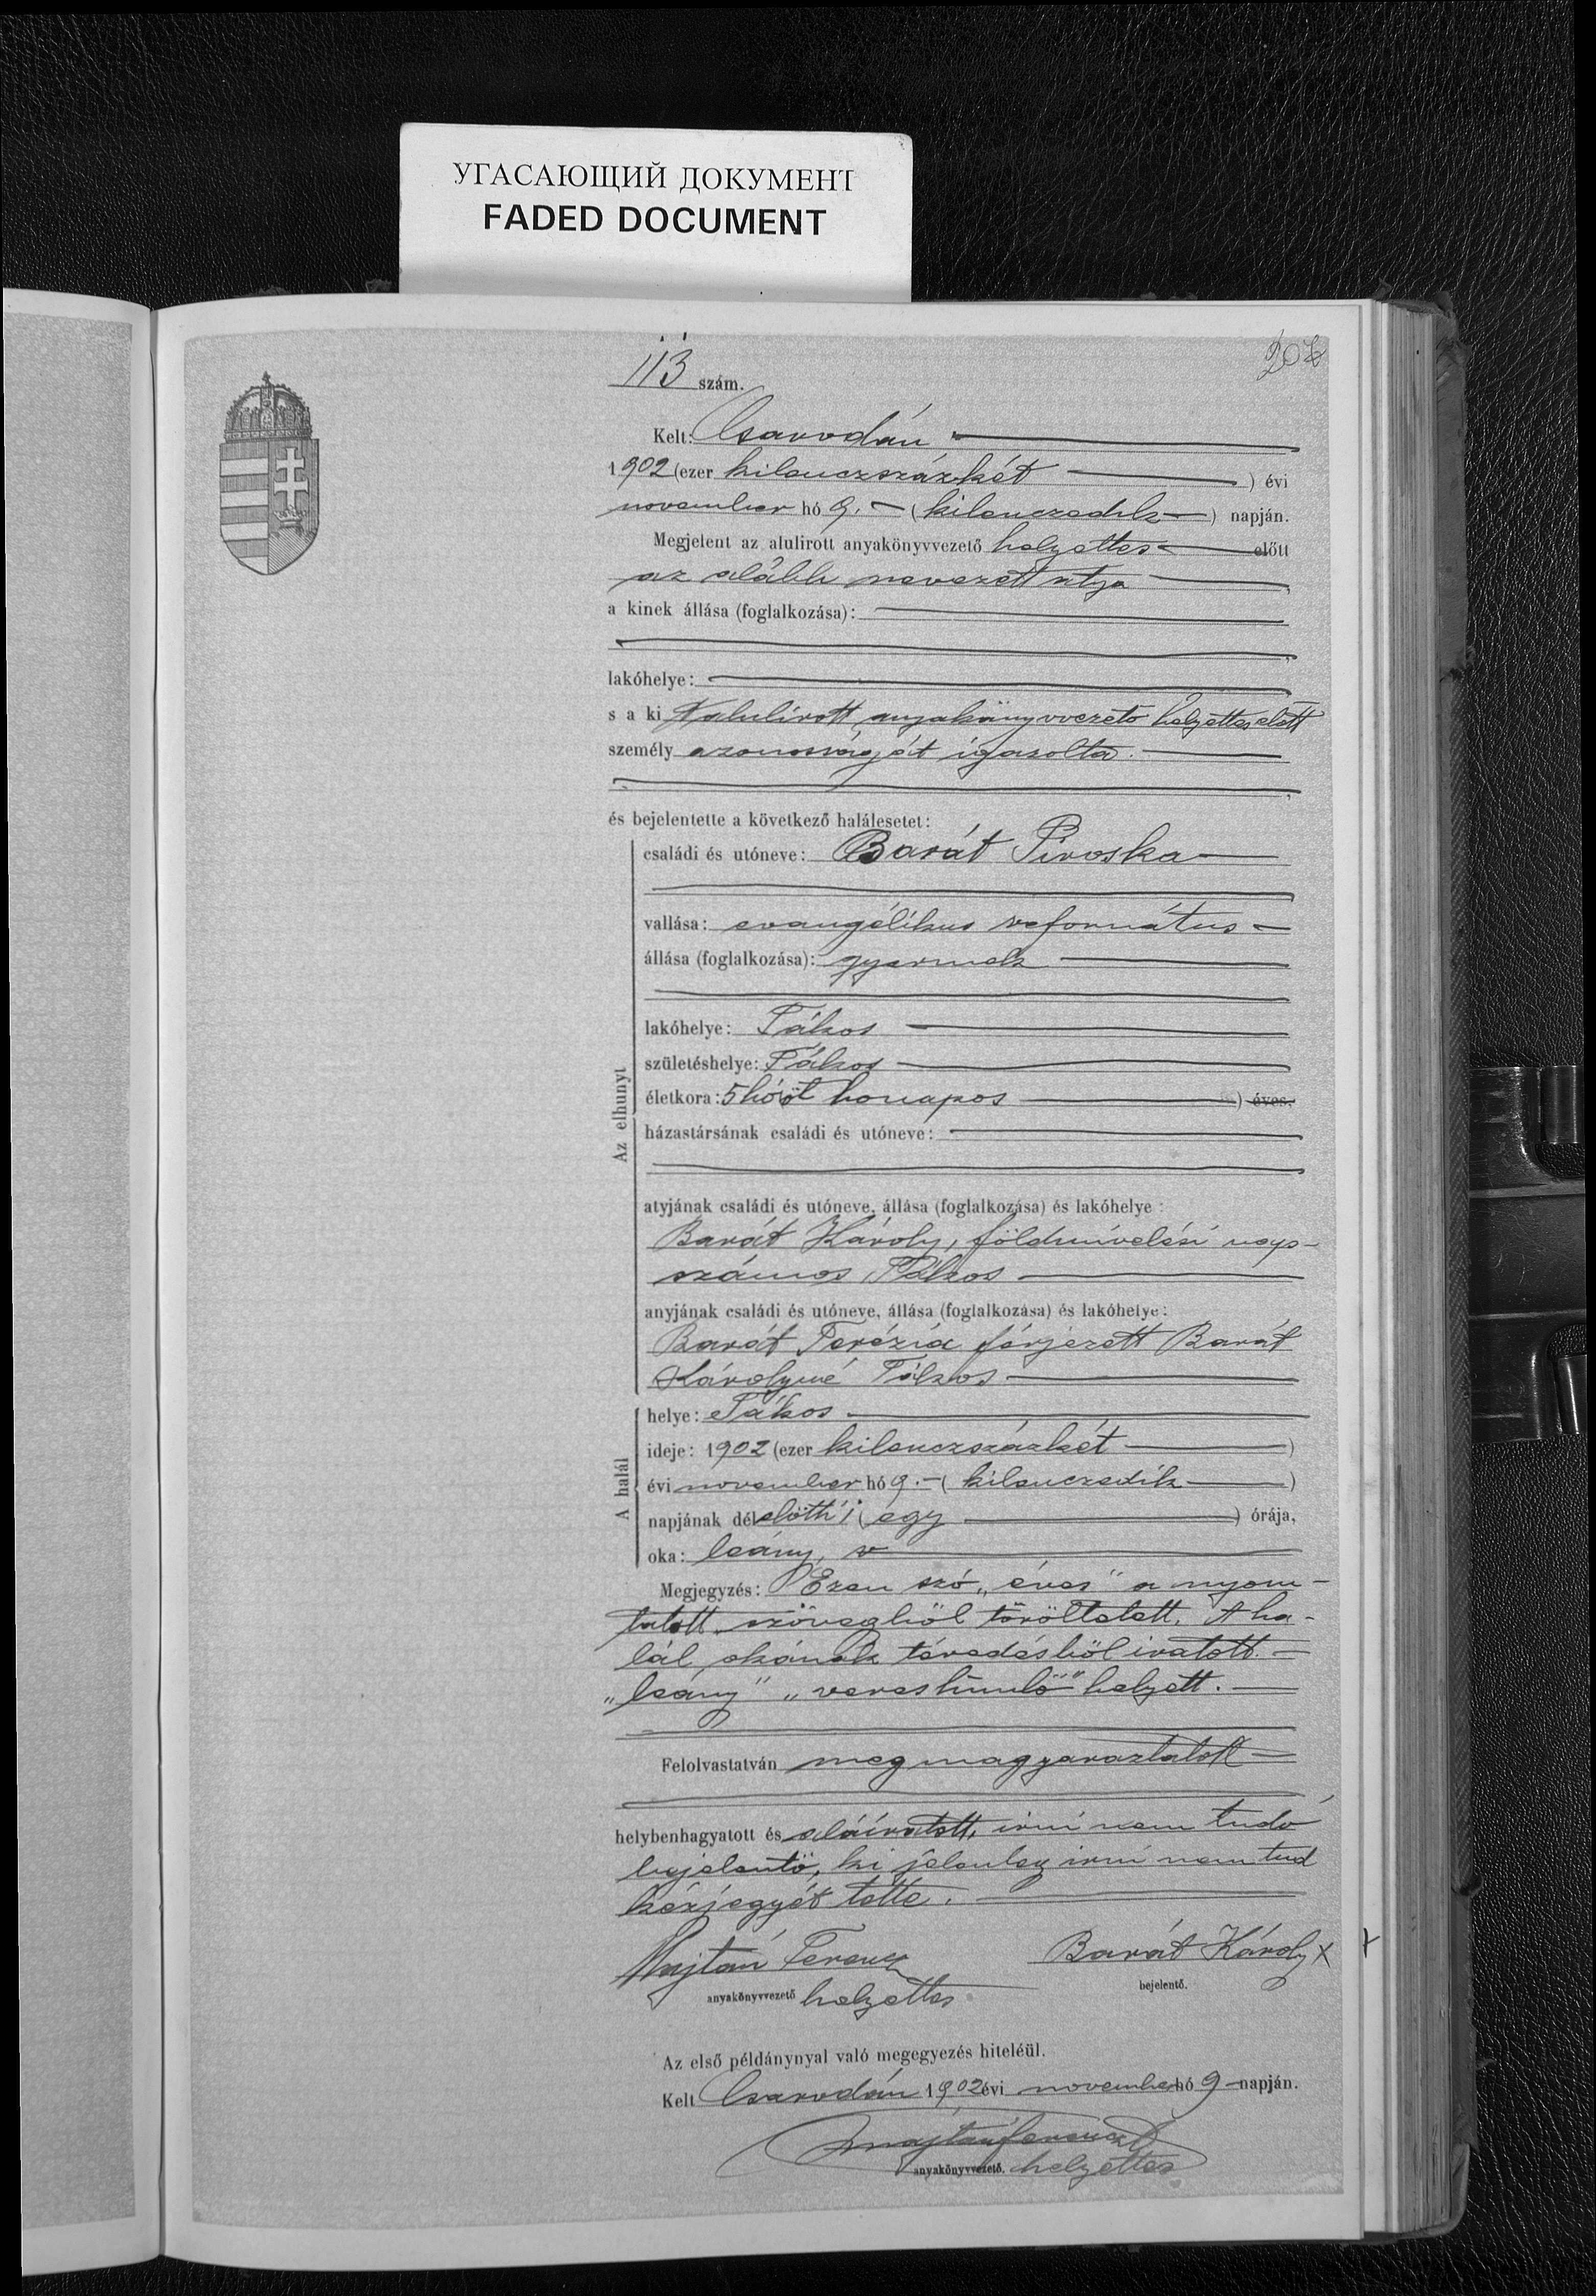 УГАСАЮЩИЙ ДОКУМЕНТ
FADED DOCUMENT
113 szám.
Kelt: Csarodán
1902 (ezer kilenczszázkét ) évi
november hó 9. (kilenczedik) napján.
Megjelent az alulirott anyakönyvvezető helyettes előtt
az alább nevezett atya
a kinek állása (foglalkozása):
lakóhelye:
s a ki alulírott anyakönyvvezető helyettes előtt
személy azonosságát igazolta.
és bejelentette a következő halálesetet:
Az elhunyt
családi és utóneve: Barát Piroska
vallása: evangélikus református
állása (foglalkozása): gyermek
lakóhelye: Tákos
születéshelye: Tákos
életkora: 5 hó öt honapos ) éves.
házastársának családi és utóneve:
atyjának családi és utóneve, állása (foglalkozása) és lakóhelye:
Barát Károly, földmívelési naps-
számos Tákos
anyjának családi és utóneve, állása (foglalkozása) és lakóhelye:
Barát Terézia férjezett Barát
Károlyné Tákos
A halál
helye: Tákos
ideje: 1902 (ezer kilenczszázkét )
évi november hó 9. (kilenczedik )
napjának délelőtti 1 (egy ) órája,
oka: leány,
Megjegyzés: Ezen szó „éves" a nyom-
tatott szövegből töröltetett. A ha-
lál okának tévedésből iratott
„leány" „vereshimlő" helyett.
Felolvastatván megmagyaraztatott
helybenhagyatott és aláiratott, irni nem tudó
bejelentő, ki jelenleg irni nem tud
kézjegyét tette.
Majtán Ferencz
anyakönyvvezető helyettes
Barát Károly x
bejelentő.
Az első példánynyal való megegyezés hiteléül.
Kelt Csarodán 1902 évi november hó 9 napján.
Majtán Ferencz
anyakönyvvezető. helyettes